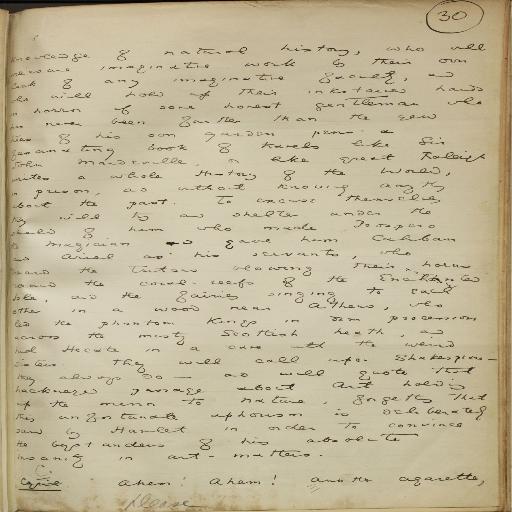 30
knowledge of natural history, who will
measure imaginative work by their own
lack of any imaginative faculty, and
who will hold up their inkstained hands
in horror if some honest gentleman who
has never been farther than the yew
trees of his own garden pens a
fascinating book of travels like Sir
John Mandeville, or like great Raleigh
writes a whole history of the world,
in prison, and without knowing anything
about the past. To excuse themselves
they will try and shelter under the
shield of him who made Prospero
the magician and gave him Caliban
and Ariel as his servants, who
heard the Tritons blowing their horns
round the coral-reefs of the Enchanted
Isle, and the fairies singing to each
other in a wood near Athens, who
led the phantom kings in dim procession
across the misty Scottish heath, and
hid Hecate in a cave with the weird
sisters. They will call upon Shakespeare—
they always do — and will quote that
hackneyed passage about Art holding
up the mirror to Nature, forgetting that
this unfortunate aphorism is deliberately
said by Hamlet in order to convince
the bystanders of his absolute
insanity in art-matters.
C.
Cyril Ahem! Ahem! Another cigarette,
please